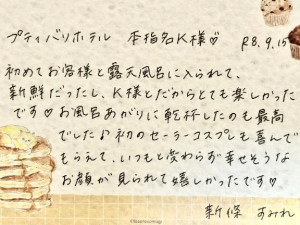 プティバリホテル 本指名K様♡ R8.9.15
初めてお客様と露天風呂に入られて、
新鮮だったし、K様とだからとても楽しかった
です♡お風呂あがりに乾杯したのも最高
でした♪初のセーラーコスプレも喜んで
もらえて、いつもと変わらず幸せそうな
お顔が見られて嬉しかったです♡
新保 すみれ